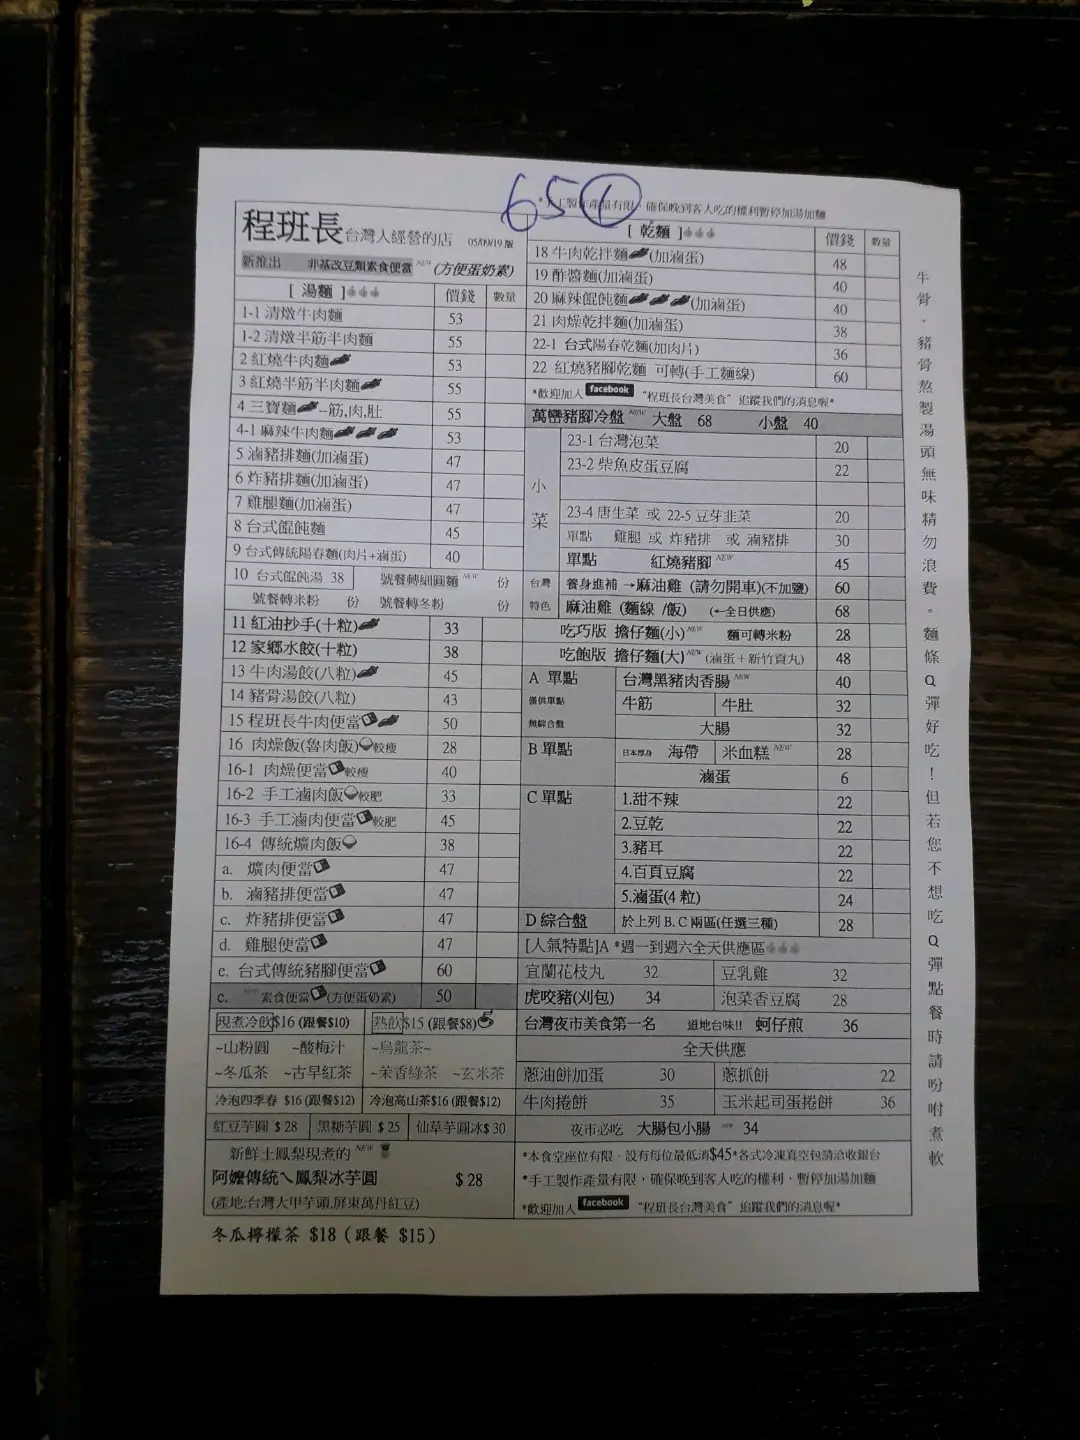 65 1
程班長 台灣人經營的店 05/09/19 版
新推出 非基改豆類素食便當 NEW (方便蛋奶素)
[ 湯麵 ] 價錢 數量
1-1 清燉牛肉麵 53
1-2 清燉半筋半肉麵 55
2 紅燒牛肉麵 53
3 紅燒半筋半肉麵 55
4 三寶麵 --筋,肉,肚 55
4-1 麻辣牛肉麵 53
5 滷豬排麵(加滷蛋) 47
6 炸豬排麵(加滷蛋) 47
7 雞腿麵(加滷蛋) 47
8 台式餛飩麵 45
9 台式傳統陽春麵(肉片+滷蛋) 40
10 台式餛飩湯 38 號餐轉細圓麵 NEW 份
號餐轉米粉 份 號餐轉冬粉 份
11 紅油抄手(十粒) 33
12 家鄉水餃(十粒) 38
13 牛肉湯餃(八粒) 45
14 豬骨湯餃(八粒) 43
15 程班長牛肉便當 50
16 肉燥飯(魯肉飯) 較瘦 28
16-1 肉燥便當 較瘦 40
16-2 手工滷肉飯 較肥 33
16-3 手工滷肉便當 較肥 45
16-4 傳統爌肉飯 38
a. 爌肉便當 47
b. 滷豬排便當 47
c. 炸豬排便當 47
d. 雞腿便當 47
e. 台式傳統豬腳便當 60
c. NEW 素食便當 (方便蛋奶素) 50
現煮冷飲$16 (跟餐$10) 熱飲$15 (跟餐$8)
~山粉圓 ~酸梅汁 ~烏龍茶~
~冬瓜茶 ~古早紅茶 ~茉香綠茶 ~玄米茶
冷泡四季春 $16 (跟餐$12) 冷泡高山茶$16 (跟餐$12)
紅豆芋圓 $ 28 黑糖芋圓 $ 25 仙草芋圓冰$ 30
新鮮土鳳梨現煮的 NEW
阿嬤傳統ㄟ鳳梨冰芋圓 $ 28
(產地:台灣大甲芋頭,屏東萬丹紅豆)
冬瓜檸檬茶 $18 ( 跟餐 $15 )
確保晚到客人吃的權利暫停加湯加麵
[ 乾麵 ] 價錢 數量
18 牛肉乾拌麵 (加滷蛋) 48
19 酢醬麵(加滷蛋) 40
20 麻辣餛飩麵 (加滷蛋) 40
21 肉燥乾拌麵(加滷蛋) 38
22-1 台式陽春乾麵(加肉片) 36
22 紅燒豬腳乾麵 可轉(手工麵線) 60
*歡迎加入 facebook "程班長台灣美食" 追蹤我們的消息喔*
萬巒豬腳冷盤 NEW 大盤 68 小盤 40
小菜
23-1 台灣泡菜 20
23-2 柴魚皮蛋豆腐 22
23-4 唐生菜 或 22-5 豆芽韭菜 20
單點 雞腿 或 炸豬排 或 滷豬排 30
單點 紅燒豬腳 NEW 45
台灣 養身進補 →麻油雞 (請勿開車)(不加鹽) 60
特色 麻油雞 (麵線 /飯) (←全日供應) 68
吃巧版 擔仔麵(小) NEW 麵可轉米粉 28
吃飽版 擔仔麵(大) NEW (滷蛋+新竹貢丸) 48
A 單點 台灣黑豬肉香腸 NEW 40
僅供單點 牛筋 牛肚 32
無綜合盤 大腸 32
B 單點 日本厚身 海帶 米血糕 NEW 28
滷蛋 6
C 單點 1.甜不辣 22
2.豆乾 22
3.豬耳 22
4.百頁豆腐 22
5.滷蛋(4 粒) 24
D 綜合盤 於上列 B. C 兩區(任選三種) 28
[人氣特點]A *週一到週六全天供應區
宜蘭花枝丸 32 豆乳雞 32
虎咬豬(刈包) 34 泡菜香豆腐 28
台灣夜市美食第一名 道地台味!! 蚵仔煎 36
全天供應
蔥油餅加蛋 30 蔥抓餅 22
牛肉捲餅 35 玉米起司蛋捲餅 36
夜市必吃 大腸包小腸 NEW 34
*本食堂座位有限,設有每位最低消$45*各式冷凍真空包請洽收銀台
*手工製作產量有限,確保晚到客人吃的權利,暫停加湯加麵
*歡迎加入 facebook "程班長台灣美食" 追蹤我們的消息喔*
牛骨,豬骨熬製湯頭無味精勿浪費。麵條Q彈好吃!但若您不想吃Q彈點餐時請吩咐煮軟